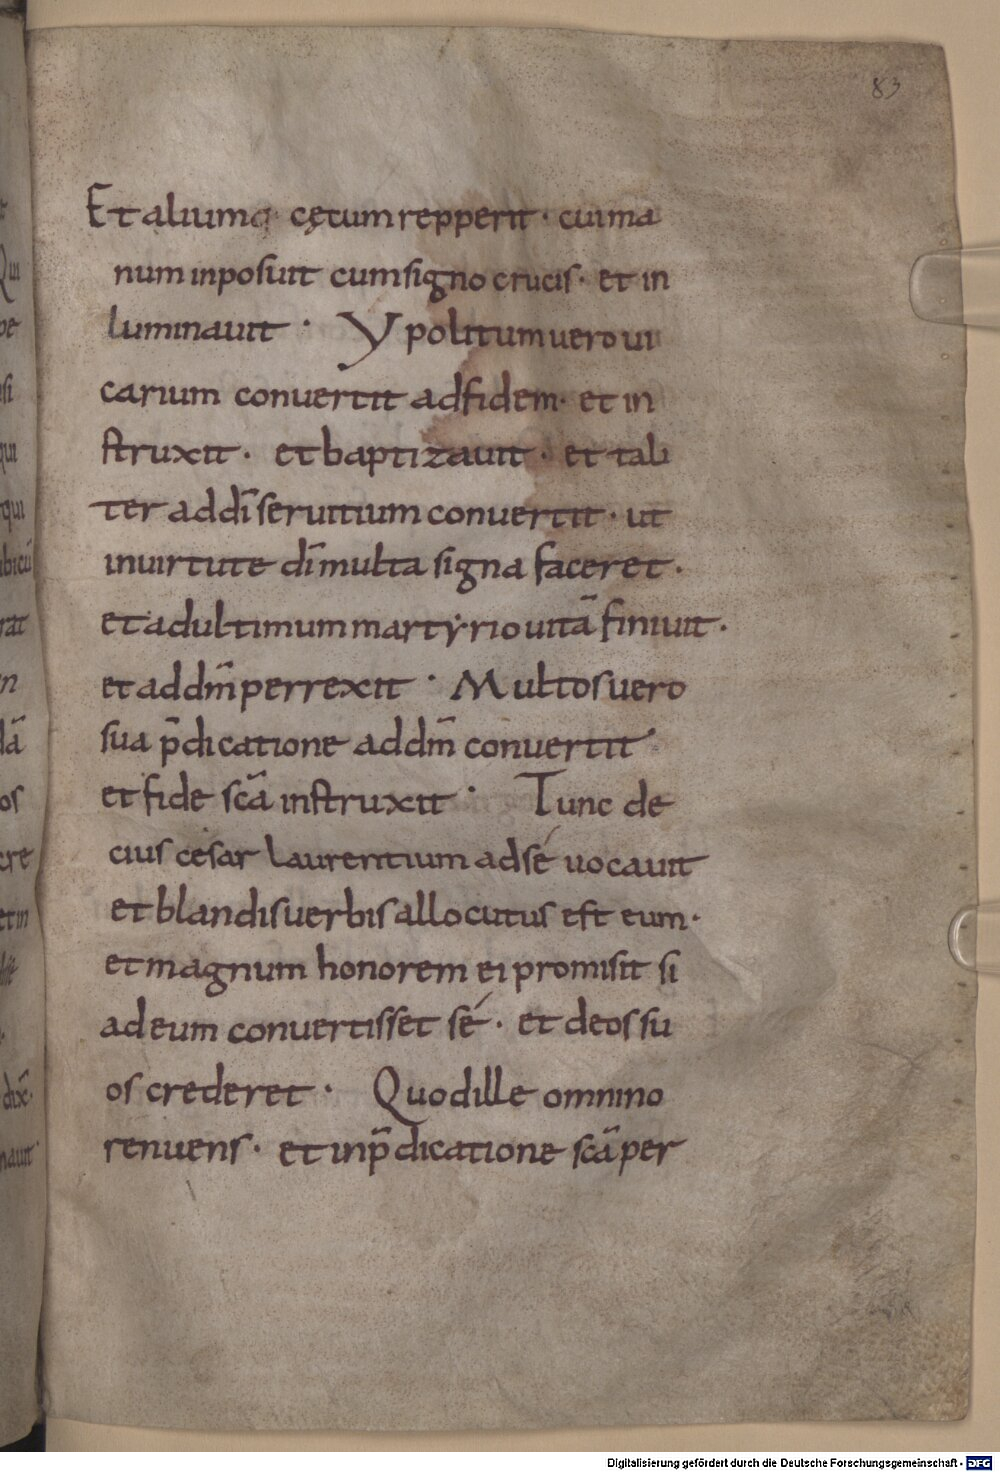 83
Et aliumq· cęcum repperit· cui ma
num inposuit cum signo crucis· et in
luminauit· Ypolitum uero ui
carium conuertit ad fidem· et in
struxit· et baptizauit· et tali
ter ad dī seruitium conuertit· ut
in uirtute dī multa signa faceret·
et ad ultimum martyrio uitā finiuit·
et ad dm̄ perrexit· Multos uero
sua p̄dicatione ad dm̄ conuertit·
et fide scā instruxit· Tunc de
cius cesar laurentium ad sé uocauit
et blandis uerbis allocutus est eum·
et magnum honorem ei promisit si
ad eum conuertisset sé· et deos su
os crederet· Quod ille omnino
renuens· et in p̄dicatione scā per
Digitalisierung gefördert durch die Deutsche Forschungsgemeinschaft - DFG